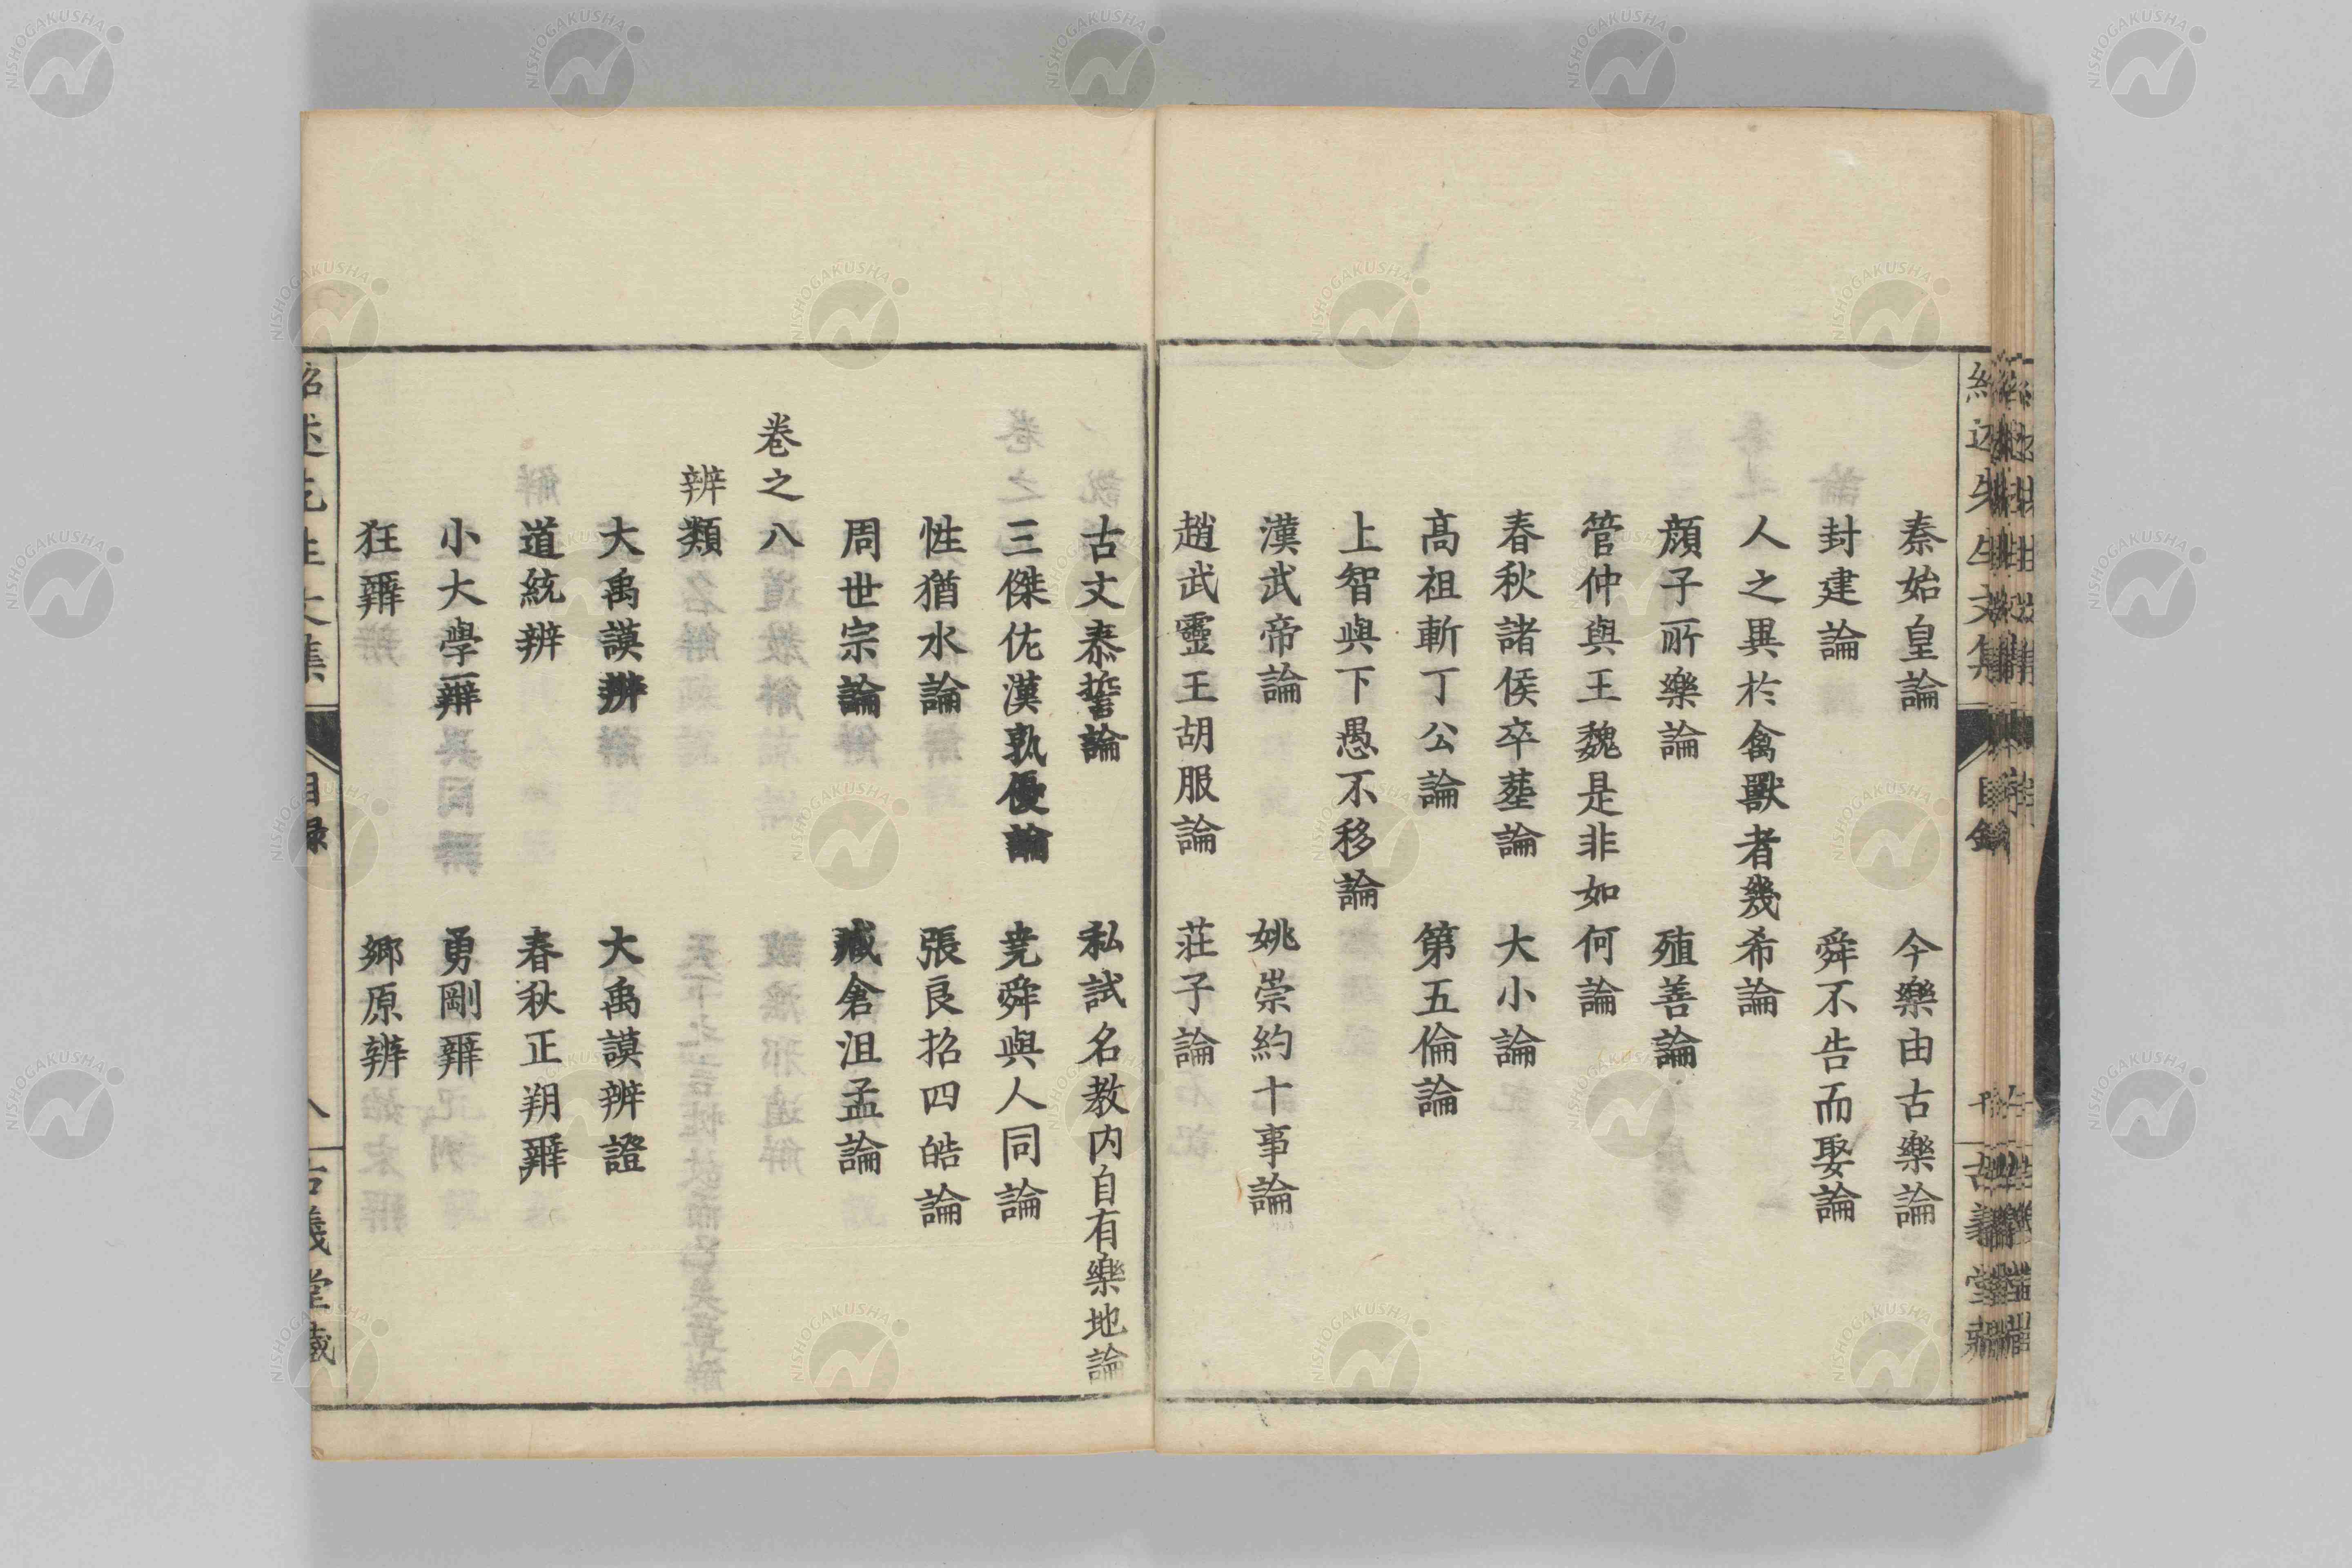 秦始皇論　今樂由古樂論
封建論　舜不告而娶論
人之異於禽獸者幾希論
顔子所樂論　殖善論
管仲與王魏是非如何論
春秋諸侯卒塟論　大小論
高祖斬丁公論　第五倫論
上智與下愚不移論
漢武帝論　姚崇約十事論
趙武靈王胡服論　莊子論
古文泰誓論　私試名教内自有樂地論
三傑佐漢孰優論　尭舜與人同論
性猶水論　張良招四皓論
周世宗論　臧倉沮孟論
卷之八
辨類
大禹謨辨　大禹謨辨證
道統辨　春秋正朔辨
小大學辨　勇剛辨
狂辨　鄉原辨
紹述先生文集　目録　八　古義堂藏
NISHOGAKUSHA